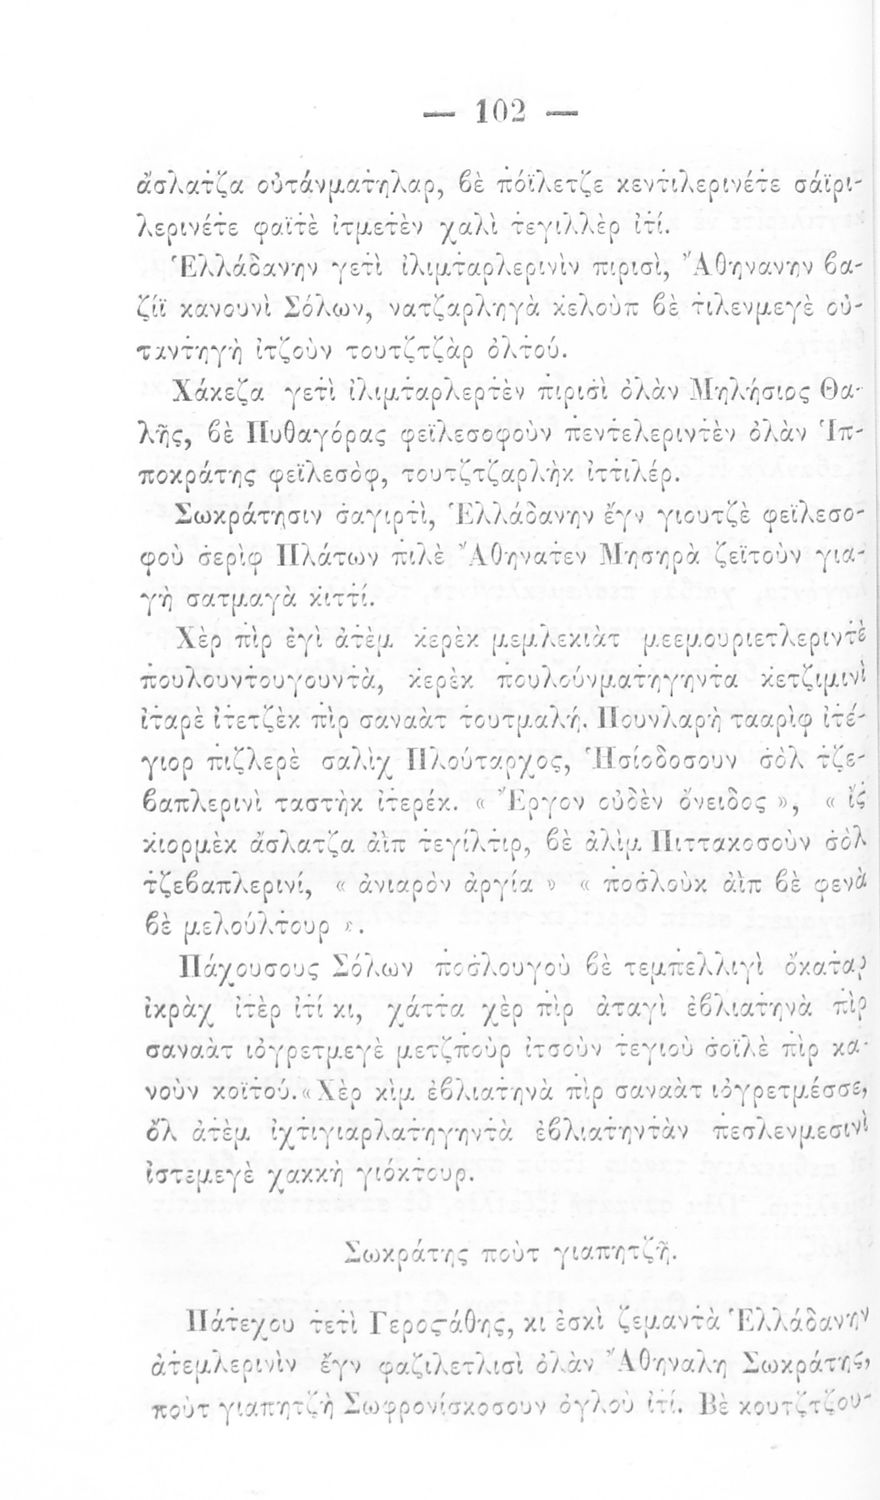 — 102 —
ἄσλατζα οὐτάνματηλαρ, βὲ πόϊλετζε κεντιλερινέτε σάϊρι-
λερινέτε φαϊτὲ ἰτμετὲν χαλὶ τεγιλλὲρ ἰτί.
Ἑλλάδανην γετὶ ἰλιμταρλερινὶν πιρισὶ, Ἀθηνανην βα-
ζίϊ κανουνὶ Σόλων, νατζαρληγὰ κελοὺπ βὲ τιλενμεγὲ οὐ-
ταντηγὴ ἰτζοὺν τουτζτζὰρ ὀλτού.
Χάκεζα γετὶ ἰλιμταρλερτὲν πιρισὶ ὀλὰν Μηλήσιος Θα-
λῆς, βὲ Πυθαγόρας φεϊλεσοφοὺν πεντελεριντὲν ὀλὰν Ἱπ-
ποκράτης φεϊλεσὸφ, τουτζτζαρλὴκ ἰττιλέρ.
Σωκράτησιν σαγιρτὶ, Ἑλλάδανην ἔγν γιουτζὲ φεϊλεσο-
φοὺ σερὶφ Πλάτων πιλὲ Ἀθηνατεν Μησηρὰ ζεϊτοὺν για-
γὴ σατμαγὰ κιττί.
Χὲρ πὶρ ἐγὶ ἀτὲμ κερὲκ μεμλεκιὰτ μεεμουριετλεριντὲ
πουλουντουγουντὰ, κερὲκ πουλούνματηγηντα κετζιμινὶ
ἰταρὲ ἰτετζὲκ πὶρ σαναὰτ τουτμαλή. Πουνλαρὴ τααρὶφ ἰτέ-
γιορ πιζλερὲ σαλὶχ Πλούταρχος, Ἡσίοδοσουν σὸλ τζε-
βαπλερινὶ ταστὴκ ἰτερέκ. « Ἔργον οὐδὲν ὄνειδος », « ἲς
κιορμὲκ ἄσλατζα ἀῒπ τεγίλτιρ, βὲ ἀλὶμ Πιττακοσοὺν σὸλ
τζεβαπλερινί, « ἀνιαρὸν ἀργία » « ποσλοὺκ ἀῒπ βὲ φενὰ
βὲ μελούλτουρ ».
Πάχουσους Σόλων ποσλουγοὺ βὲ τεμπελλιγὶ ὄκαταρ
ἰκρὰχ ἰτὲρ ἰτί κι, χάττα χὲρ πὶρ ἀταγὶ ἐβλιατηνὰ πὶρ
σαναὰτ ἰόγρετμεγὲ μετζποὺρ ἰτσοὺν τεγιοὺ σοϊλὲ πὶρ κα-
νοὺν κοϊτού. «Χὲρ κὶμ ἐβλιατηνὰ πὶρ σαναὰτ ἰόγρετμέσσε,
ὂλ ἀτὲμ ἰχτιγιαρλατηγηντὰ ἐβλιατηντὰν πεσλενμεσινὶ
ἰστεμεγὲ χακκὴ γιόκτουρ.
Σωκράτης ποὺτ γιαπητζῆ.
Πάτεχου τετὶ Γεροστάθης, κι ἐσκὶ ζεμαντὰ Ἑλλάδανην
ἀτεμλερινὶν ἔγν φαζιλετλισὶ ὀλὰν Ἀθηναλη Σωκράτης,
ποὺτ γιαπητζὴ Σωφρονίσκοσουν ὀγλοὺ ἰτί. Βὲ κουτζτζου-